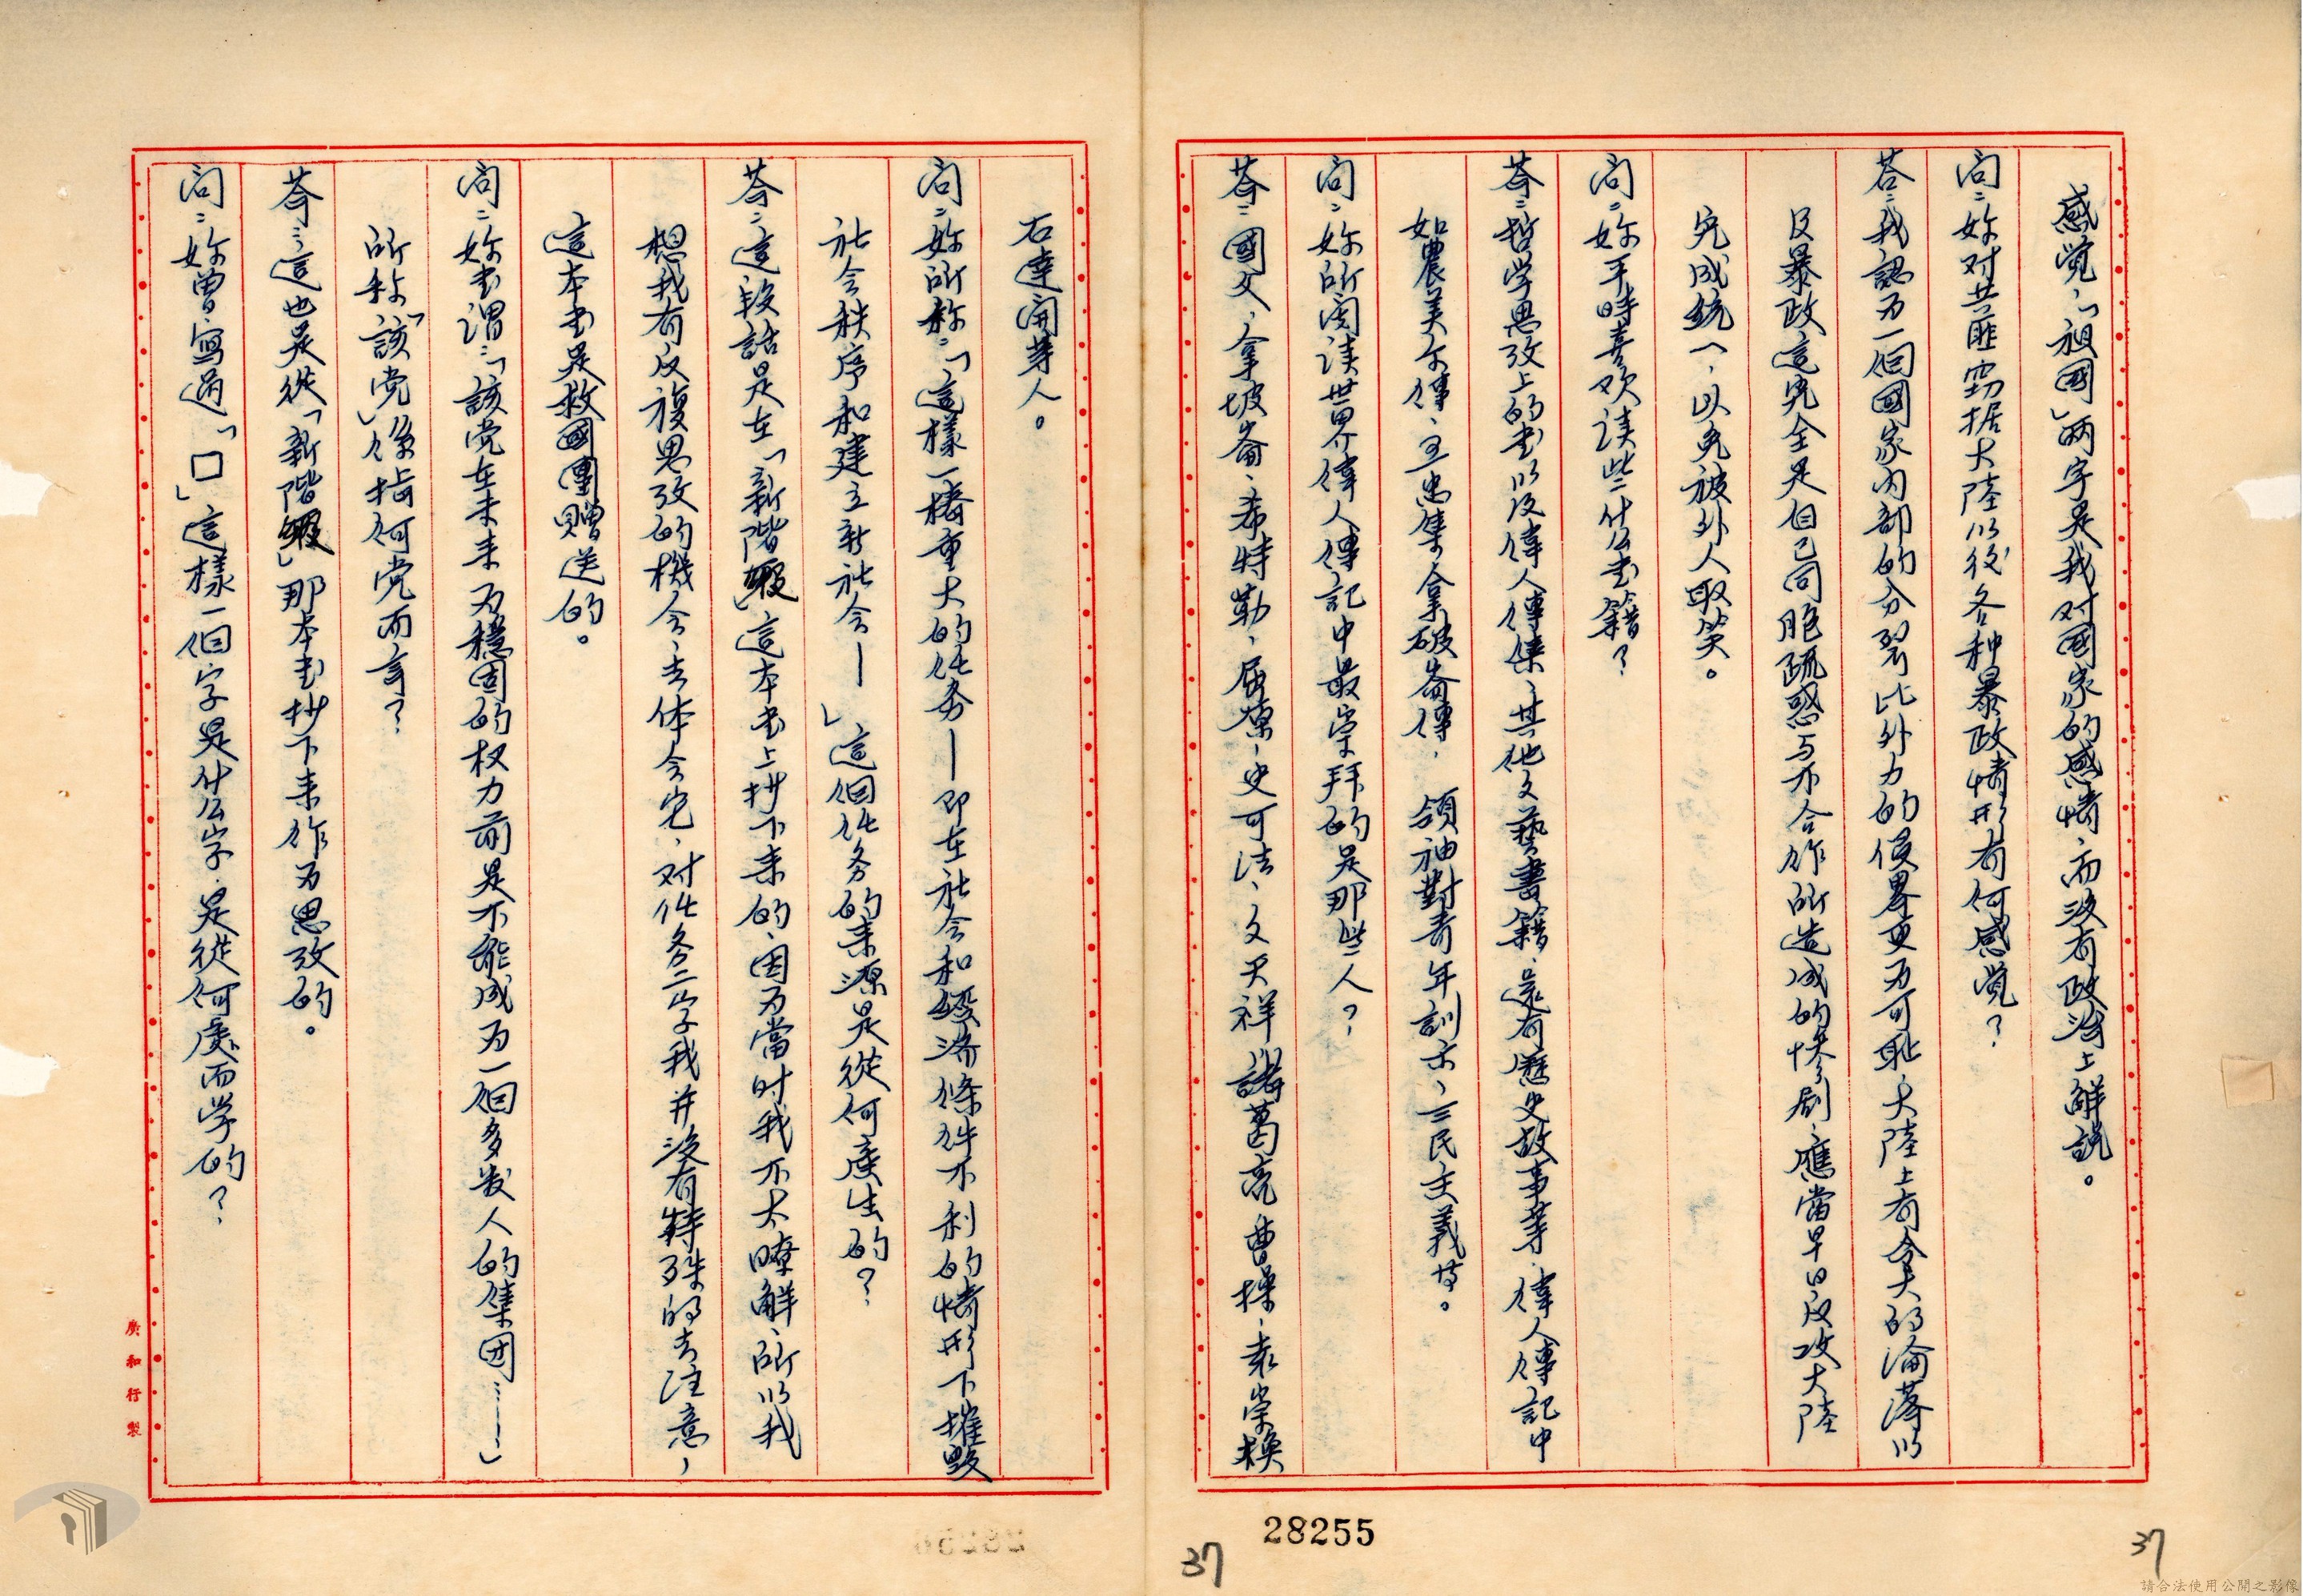 感覚,「祖國」兩字是我对國家的感情,而没有政治上解説。
问:妳对共匪窃据大陸以後各种暴政情形有何感覚?
荅:我認为一個國家内部的分裂比外力的侵畧更为可恥,大陸上有今天的淪落以
及暴政,這完全是自己同胞疏惑与不合作所造成的惨剧,應當早日反攻大陸
完成統一,以免被外人取笑。
问:妳平時喜欢读些什么书籍?
荅:哲学思攷上的书以及偉人傳集、其他文藝書籍,還有歷史故事等,偉人傳記中
如農美尓傳、岳忠集、拿破崙傳,領袖對青年訓示、三民主義等。
问:妳所阅读世界偉人傳記中最崇拜的是那些人?
荅:國父、拿坡崙、希特勒、屈原、史可法、文天祥、諸葛亮、曹操、袁崇焕
石達開等人。
问:妳所称:「這樣一樁重大的任务—即在社会和經济條件不利的情形下摧毀
社会秩序和建立新社会—」這個任务的来源是從何產生的?
荅:這段話是在「新階級」這本书上抄下来的,因为當时我不太瞭解,所以我
想我有反複思攷的機会,去体会它,对任务二字我并没有特殊的去注意,
這本书是救國團贈送的。
问:妳书謂:「該党在未来为穩固的权力前是不能成为一個多发人的集团……」
所称「該党」係指何党而言?
荅:這也是從「新階級」那本书抄下来作为思攷的。
问:妳曾寫過「口」這樣一個字是什么字,是從何處而学的?
廣和行製
28255
37
37
請合法使用公開之影像